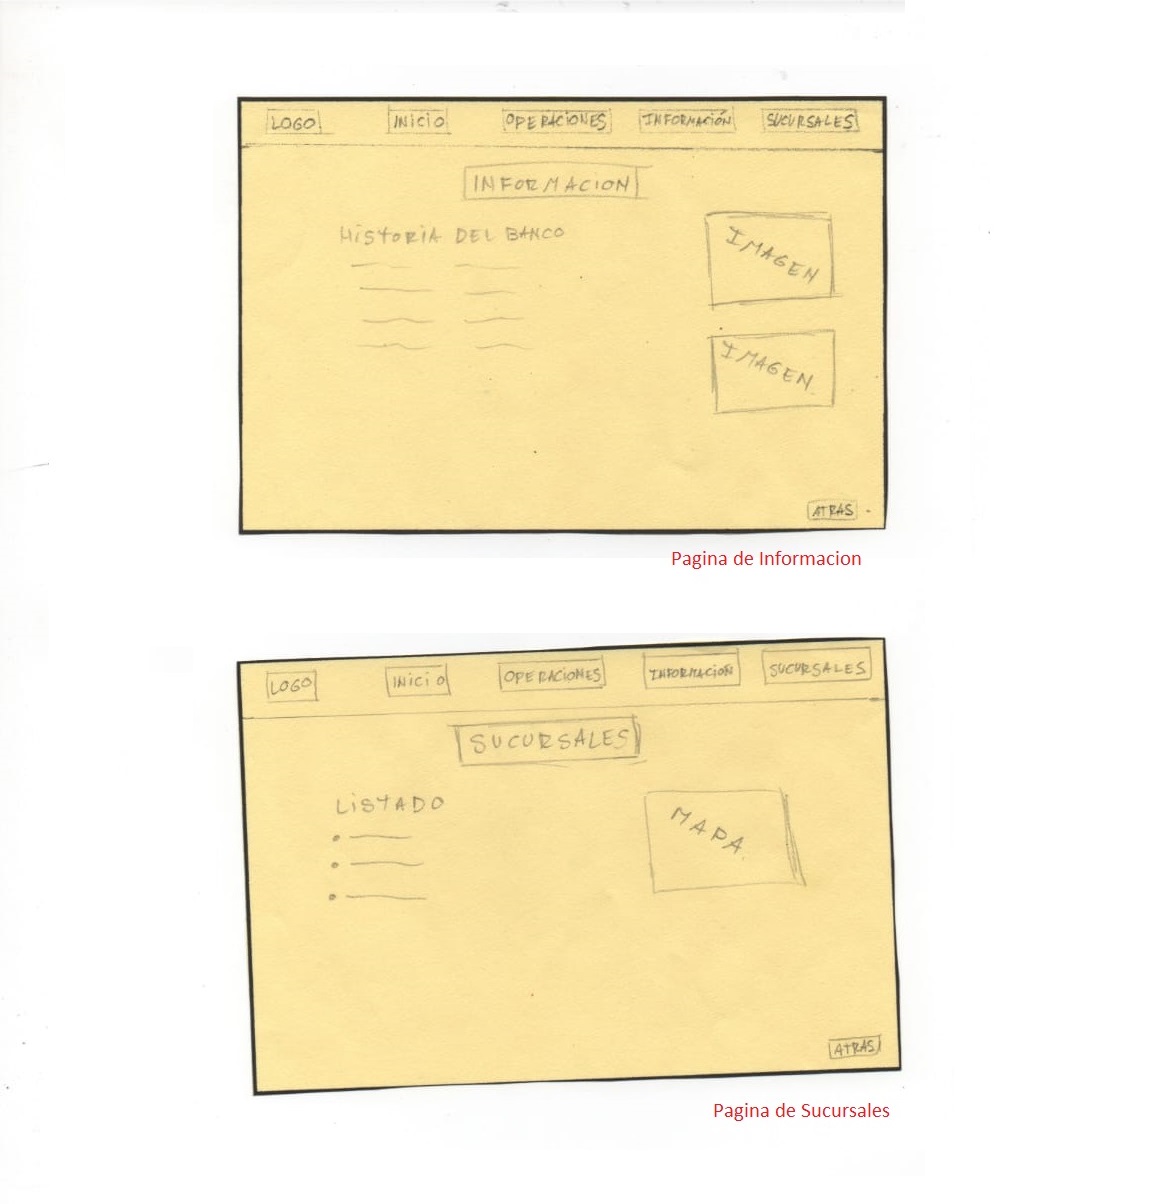 LOGO INICIO OPERACIONES INFORMACIÓN SUCURSALES
INFORMACION
HISTORIA DEL BANCO
IMAGEN
IMAGEN
ATRAS
Pagina de Informacion
LOGO INICIO OPERACIONES INFORMACIÓN SUCURSALES
SUCURSALES
LISTADO
MAPA
ATRAS
Pagina de Sucursales